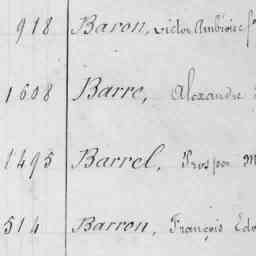 918 Baron, Victor Ambroise
1608 Barre, Alexandre
1495 Barrel, Prosper M
514 Barron, François Edo